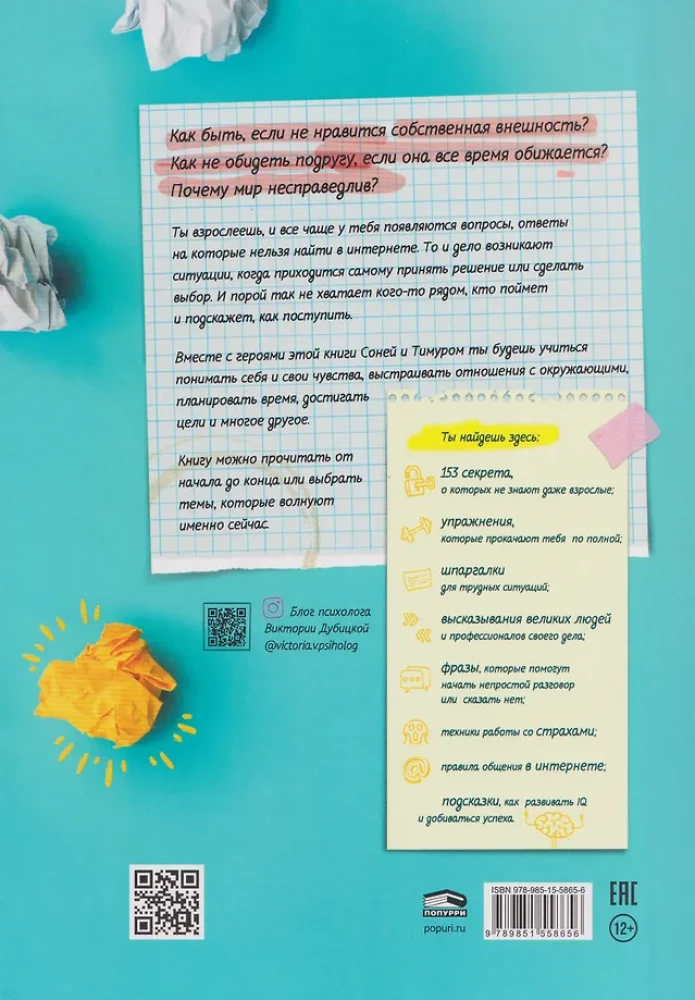 Как быть, если не нравится собственная внешность?
Как не обидеть подругу, если она все время обижается?
Почему мир несправедлив?
Ты взрослеешь, и все чаще у тебя появляются вопросы, ответы
на которые нельзя найти в интернете. То и дело возникают
ситуации, когда приходится самому принять решение или сделать
выбор. И порой так не хватает кого-то рядом, кто поймет
и подскажет, как поступить.
Вместе с героями этой книги Соней и Тимуром ты будешь учиться
понимать себя и свои чувства, выстраивать отношения с окружающими,
планировать время, достигать
цели и многое другое.
Книгу можно прочитать от
начала до конца или выбрать
темы, которые волнуют
именно сейчас.
Ты найдешь здесь:
153 секрета,
о которых не знают даже взрослые;
упражнения,
которые прокачают тебя по полной;
шпаргалки
для трудных ситуаций;
высказывания великих людей
и профессионалов своего дела;
фразы, которые помогут
начать непростой разговор
или сказать нет;
техники работы со страхами;
правила общения в интернете;
подсказки, как развивать IQ
и добиваться успеха.
Блог психолога
Виктории Дубицкой
@victoria.v.psiholog
ПОПУРРИ
popuri.ru
ISBN 978-985-15-5865-6
9789851558656
EAC
12+